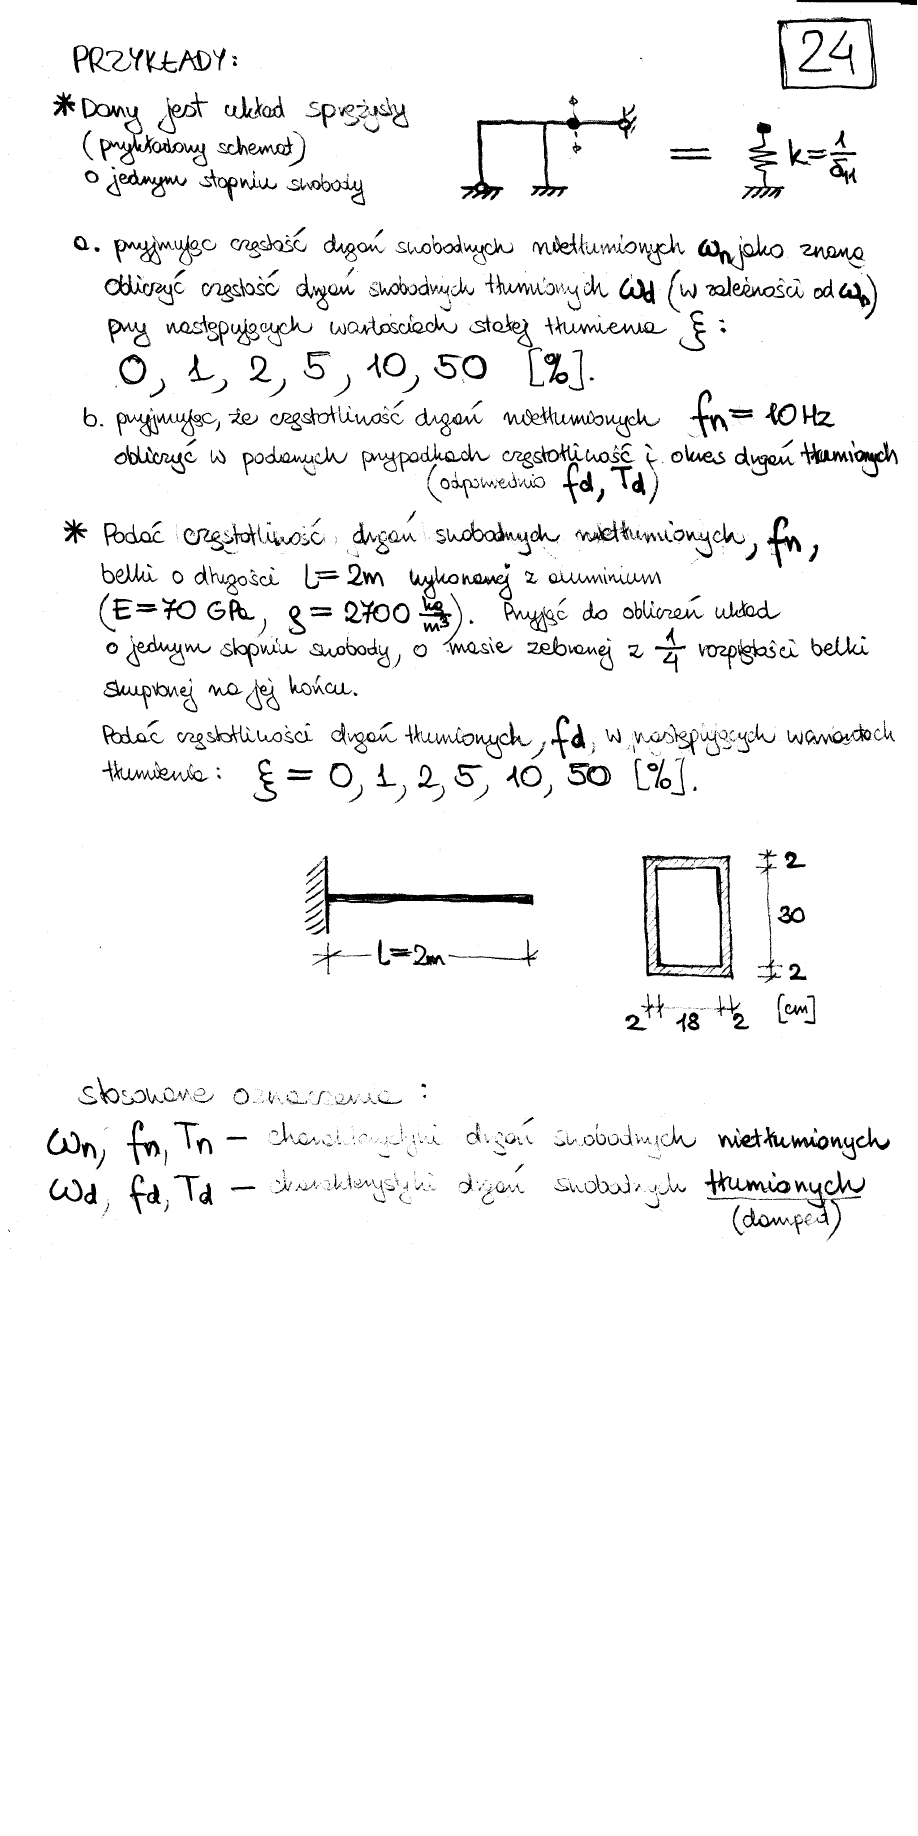 24
PRZYKŁADY:
* Dany jest układ sprężysty
(przykładowy schemat)
o jednym stopniu swobody
= k = 1/δ11
a. przyjmując częstość drgań swobodnych nietłumionych ωn jako znaną
obliczyć częstość drgań swobodnych tłumionych ωd (w zależności od ωn)
przy następujących wartościach stałej tłumienia ξ:
0, 1, 2, 5, 10, 50 [%].
b. przyjmując, że częstotliwość drgań nietłumionych fn = 10 Hz
obliczyć w podanych przypadkach częstotliwość i okres drgań tłumionych
(odpowiednio fd, Td)
* Podać częstotliwość drgań swobodnych nietłumionych, fn,
belki o długości l = 2m wykonanej z aluminium
(E = 70 GPa, ρ = 2700 kg/m³). Przyjąć do obliczeń układ
o jednym stopniu swobody, o masie zebranej z 1/4 rozpiętości belki
skupionej na jej końcu.
Podać częstotliwości drgań tłumionych, fd, w następujących wariantach
tłumienia: ξ = 0, 1, 2, 5, 10, 50 [%].
l = 2m
2
30
2
2 18 2 [cm]
stosowane oznaczenia:
ωn, fn, Tn – charakterystyki drgań swobodnych nietłumionych
ωd, fd, Td – charakterystyki drgań swobodnych tłumionych
(damped)